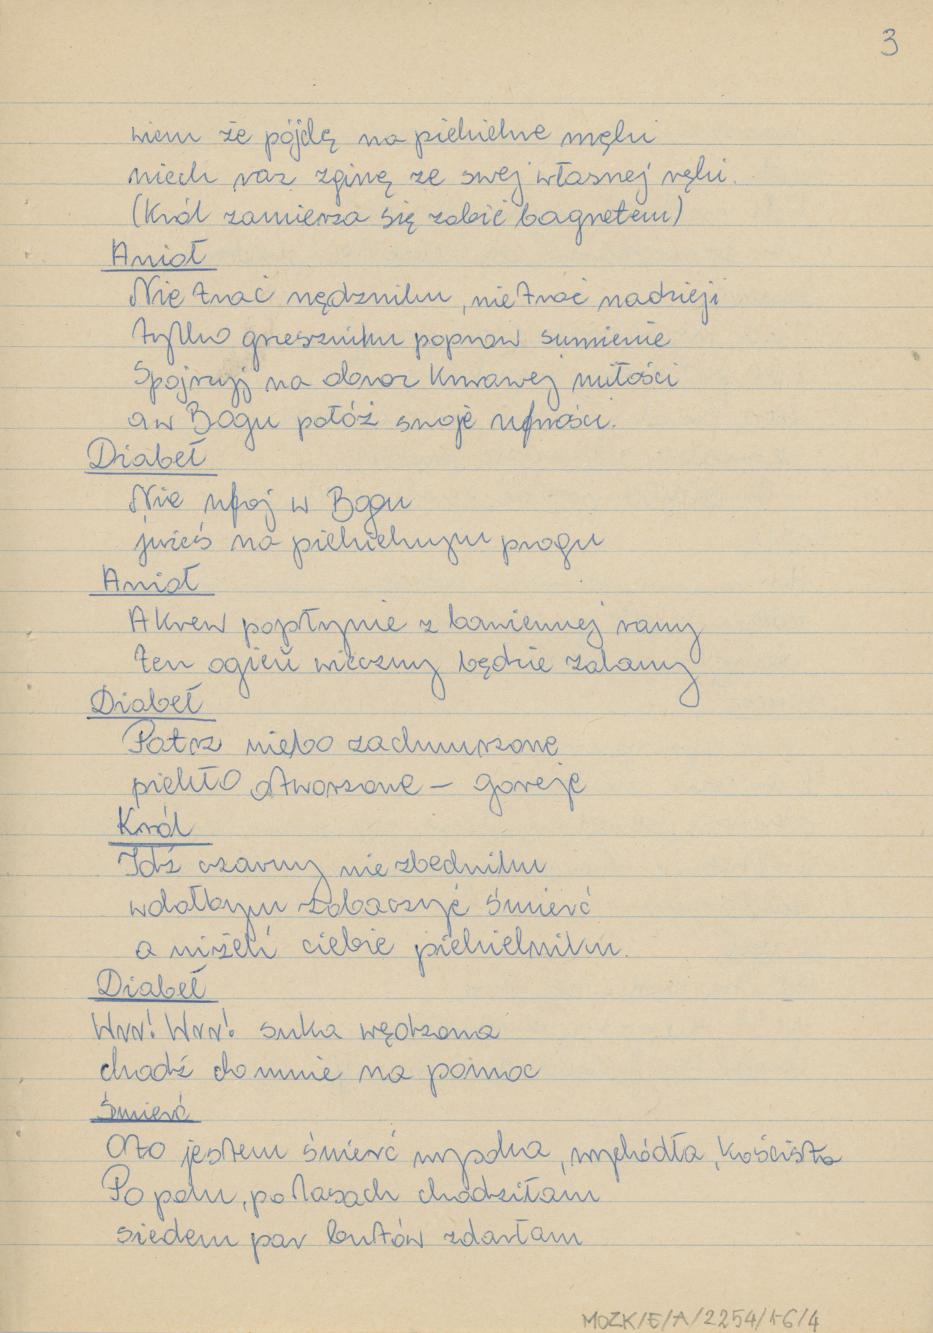 3
wiem że pójdę na piekielne męki
niech raz zginę ze swej własnej ręki.
(Król zamierza się zabić bagnetem)
Anioł
Nie trać nędzniku, nie trać nadzieji
tylko grzeszniku popraw sumienie
Spojrzyj na obraz krwawej miłości
a w Bogu połóż swoje ufności.
Diabeł
Nie ufaj w Bogu
jużeś na piekielnym progu
Anioł
A krew popłynie z kamiennej ramy
ten ogień wieczny będzie zalany
Diabeł
Patrz niebo zachmurzone
piekło otworzone – goreje
Król
Idź czarny niezbedniku
wolałbym zobaczyć śmierć
a niżeli ciebie piekielniku.
Diabeł
Wrr! Wrr! suka wędzona
chodź do mnie na pomoc
Śmierć
Oto jestem śmierć wypska, wychódła, koścista
Po polu, po lasach chodziłam
siedem par butów zdarłam
MOZK/E/A/2254/1-6/4